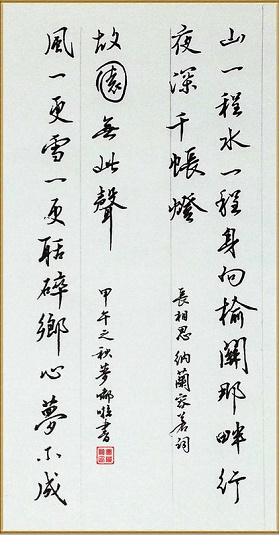 山一程水一程身向榆關那畔行
夜深千帳燈
長相思 納蘭容若詞
風一更雪一更聒碎鄉心夢不成
故園無此聲
甲午之秋夢書